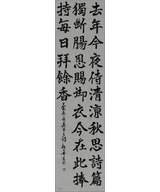 去年今夜侍清涼秋思詩篇
獨斷腸恩賜御衣今在此捧
持每日拜餘香